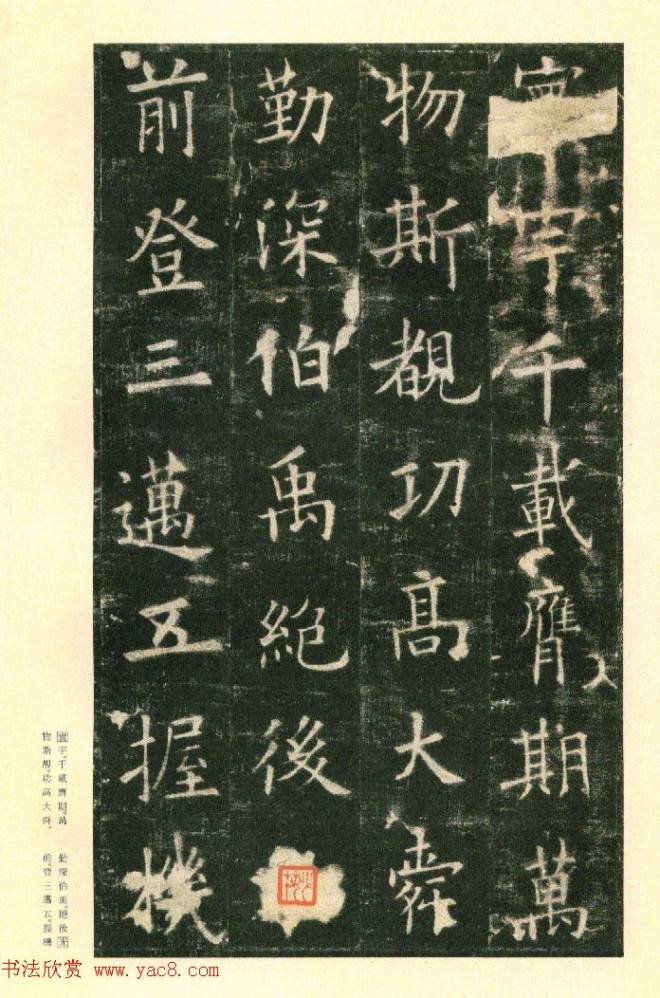 宇千載膺期萬
物斯覩功高大舜
勤深伯禹絕後
前登三邁五握機
寰宇。千載膺期。萬
物斯覩。功高大舜。
勤深伯禹。絕後光
前。登三邁五。握機
书法欣赏 www.yac8.com